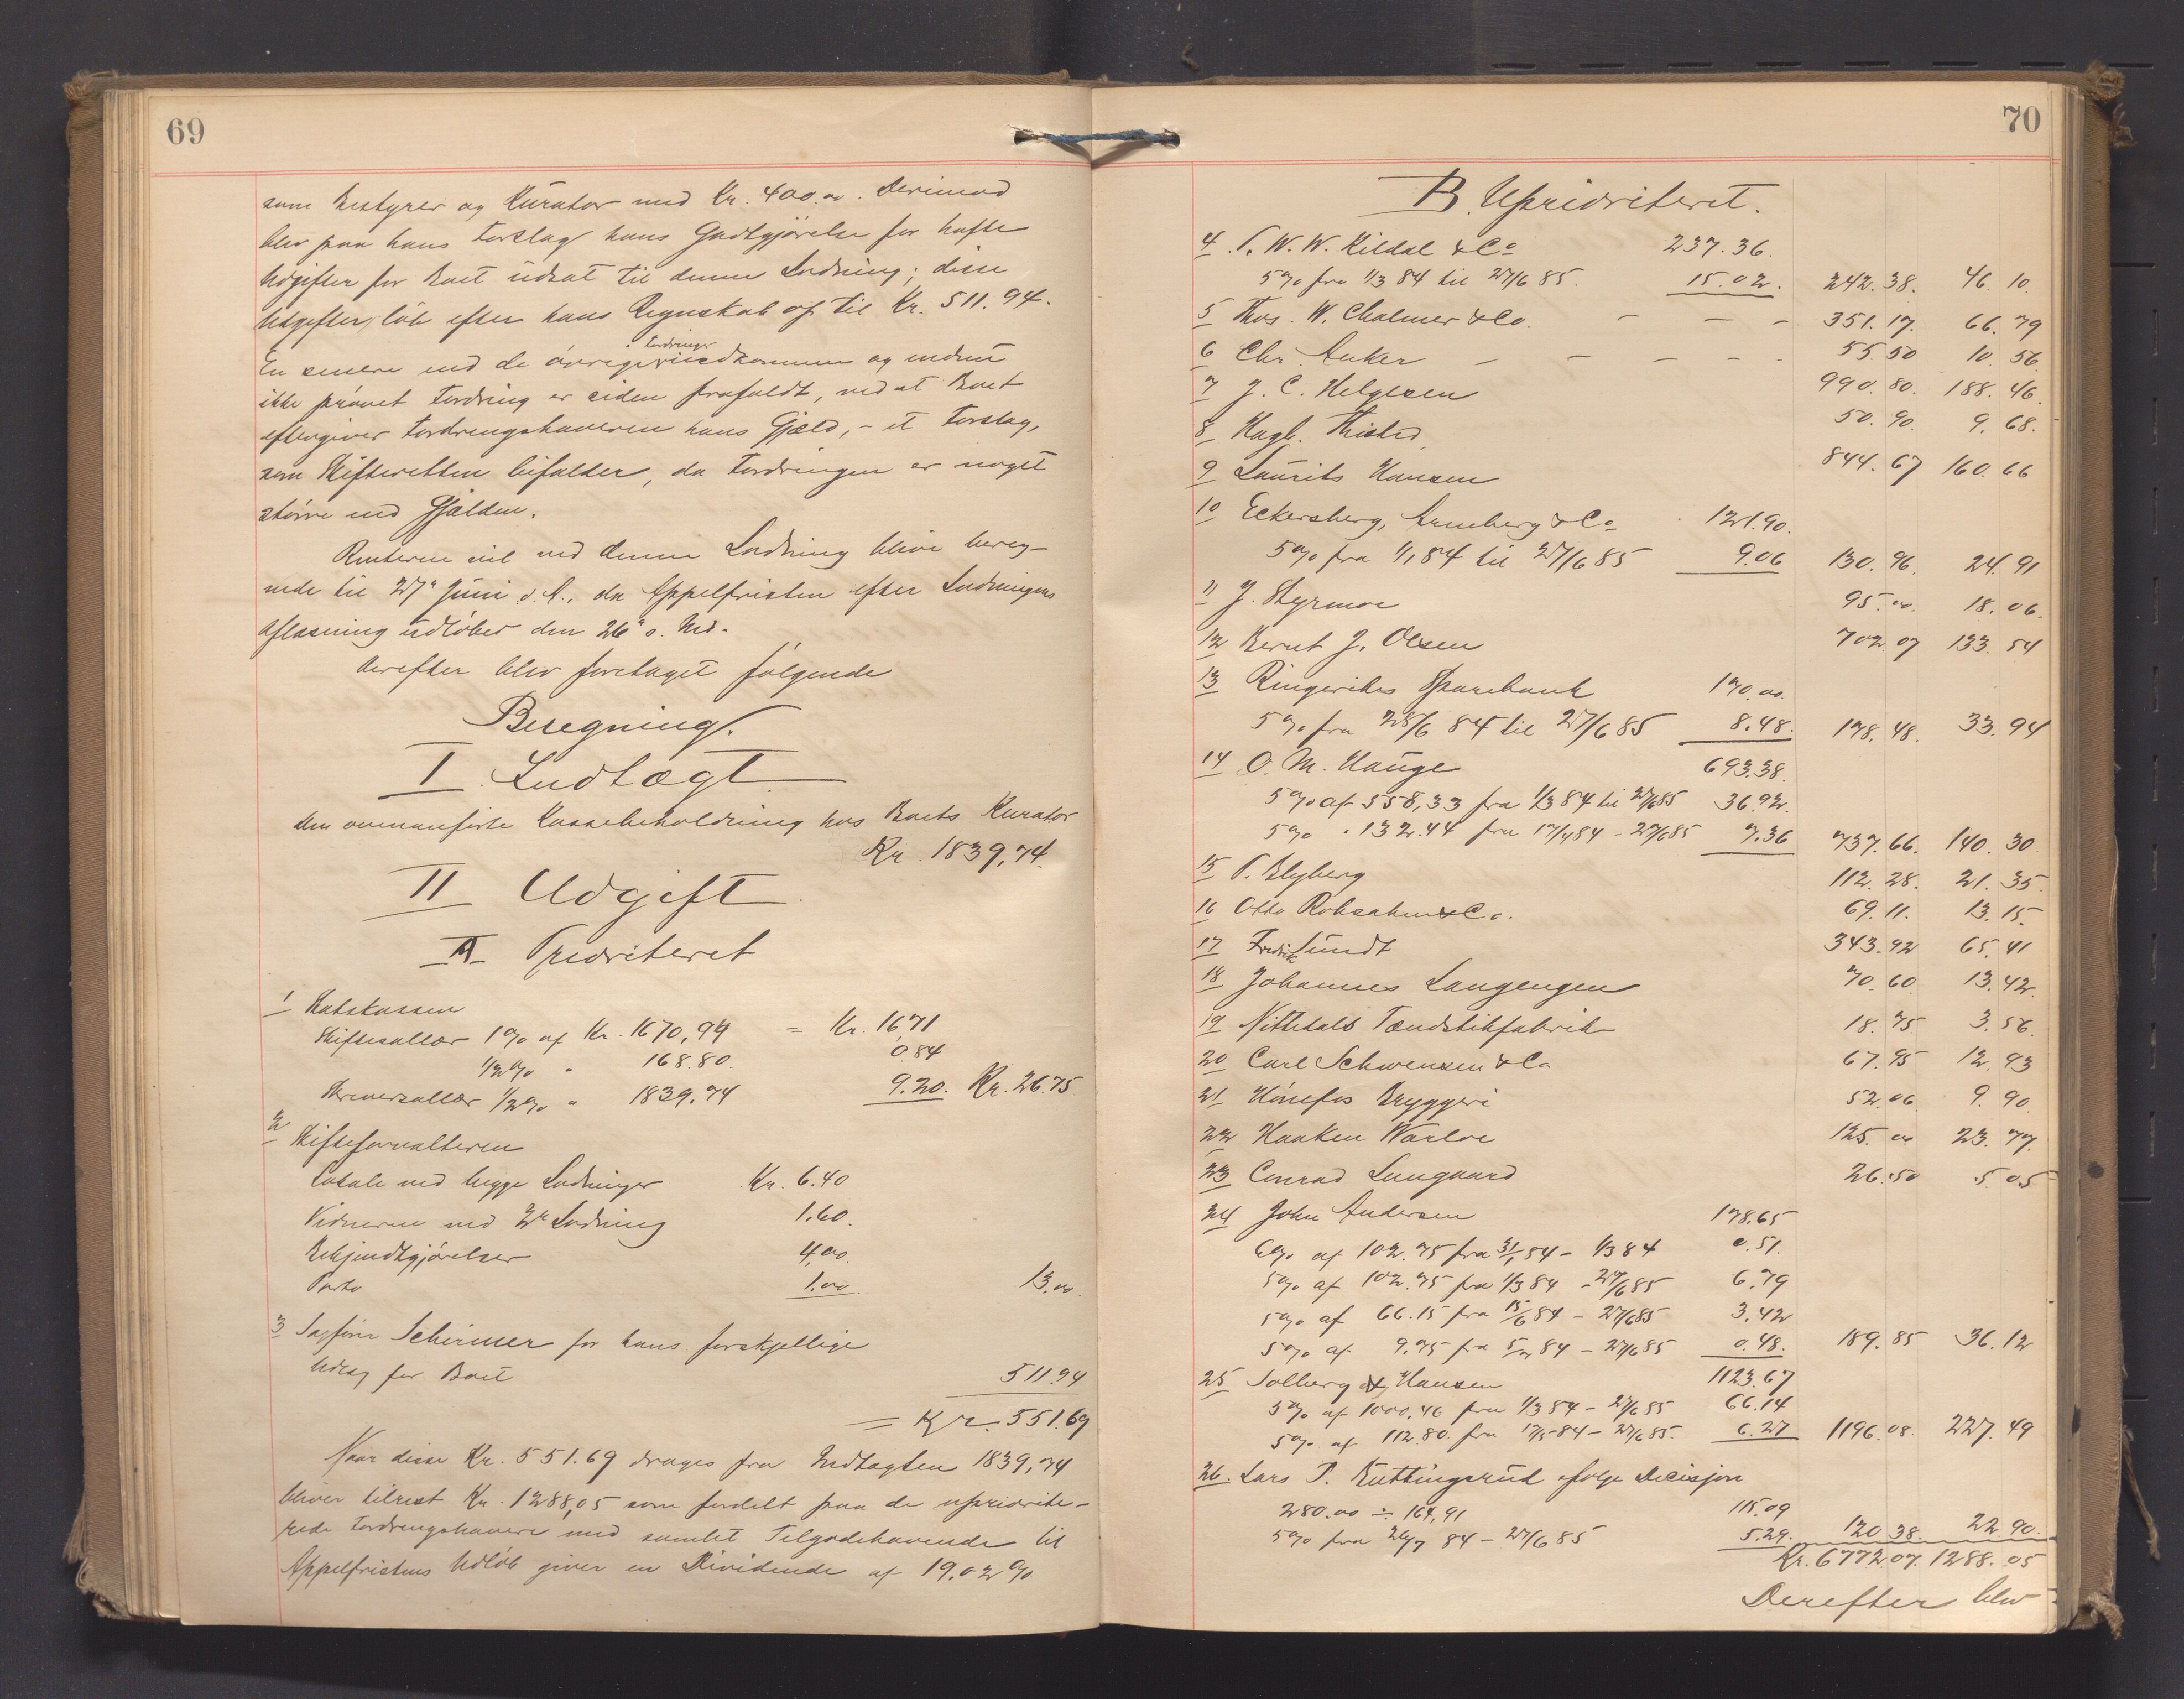 69
som Bestyrer og Kurator med Kr. 400.00. Derimod
blev paa hans Forslag hans Godtgjörelse for hafte
Udgifter for Boet udsat til denne Lodning; disse
Udgifter löb efter hans Regnskab op til Kr. 511.94.
En senere end de övrige Fordringer indkommen og endnu
ikke prövet Fordring er siden frafaldt, ved at Boet
eftergiver Fordringshaveren hans Gjæld, - et Forslag,
som Skifteretten bifalder, da Fordringen er noget
större end Gjælden.
Renterne vil ved denne Lodning blive bereg-
nede til 27de Juni d. A., da Appelfristen efter Lodningens
Aflæsning udlöber den 26de s. Md.
Derefter blev foretaget følgende
Beregning.
I. Indtægt
den ovenanförte Kassebeholdning hos Boets Kurator
Kr. 1839,74.
II Udgift
A Prioriteret
1 Statskassen
Skiftesallær 1 % af Kr. 1670,94 = Kr. 16,71
1/2 % " 168.80. 0.84
Skriversallær 1/2 % " 1839.74 9.20. Kr. 26.75
2 Skifteforvalteren
Lokale ved begge Lodninger Kr. 6.40
Vidnerne ved 2n Lodning 1.60.
Bekjendtgjörelser 4,00.
Porto 1.00. 13,00.
3 Sagförer Schirmer for hans forskjellige
Udlæg for Boet 511.94
= Kr. 551.69
Naar disse Kr. 551.69 drages fra Indtægten 1839,74
bliver tilrest Kr. 1288,05 som fordelt paa de upriorite-
rede Fordringshavere med samlet Tilgodehavende til
Appelfristens Udlöb giver en Dividende af 19.02 %
70
B. Uprioriteret.
4 P. W. W. Kildal & Co 237.36.
5 % fra 1/3 84 til 27/6 85. 15.02. 242.38. 46.10.
5 Thos. W. Chalmer & Co. - - - 351.17. 66.79
6 Chr. Anker - - - - - 55.50 10.56.
7 J. C. Helgesen 990.80. 188.46.
8 Hagb. Thisted 50.90. 9.68.
9 Laurits Hansen 844.67 160.66
10 Eckersberg, Arneberg & Co 121.90.
5 % fra 1/1 84 til 27/6 85 9.06 130.96. 24.91
11 J. Styrmoe 95.00. 18.06.
12 Bernt J. Olsen 702.07 133.54
13 Ringerikes Sparebank 170.00.
5 % fra 28/6 84 til 27/6 85 8.48. 178.48. 33.94
14 O. M. Hauge 693.38.
5 % af 558,33 fra 1/3 84 til 27/6 85 36.92.
5 % " 132.44 fra 17/4 84 - 27/6 85 7.36 737.66. 140.30
15 P. Blyberg 112.28. 21.35.
16 Otto Robsahm & Co. 69.11. 13.15.
17 Fredrik Sundt 343.92 65.41
18 Johannes Langengen 70.60 13.42.
19 Nittedals Tændstikfabrik 18.75 3.56.
20 Carl Schwensen & Co 67.95 12.93
21 Hönefos Bryggeri 52.06. 9.90.
22 Haaken Warloe 125.00 23.77.
23 Conrad Lungaard 26.50 5.05
24 John Andersen 178.65
6 % af 102.75 fra 31/1 84 - 1/3 84 0.51.
5 % af 102.75 fra 1/3 84 - 27/6 85 6.79
5 % af 66.15 fra 15/6 84 - 27/6 85 3.42
5 % af 9.75 fra 5/7 84 - 27/6 85 0.48. 189.85 36.12
25 Solberg & Hansen 1123.67
5 % af 1000,46 fra 1/3 84 - 27/6 85 66.14
5 % af 112.80. fra 17/5 84 - 27/6 85. 6.27 1196.08. 227.49
26. Lars P. Buttingsrud ifølge Decisjon
280.00 ÷ 164,91 115.09
5 % fra 26/7 84 - 27/6 85 5.29. 120.38. 22.90.
Kr. 6772.07. 1288.05
Derefter blev